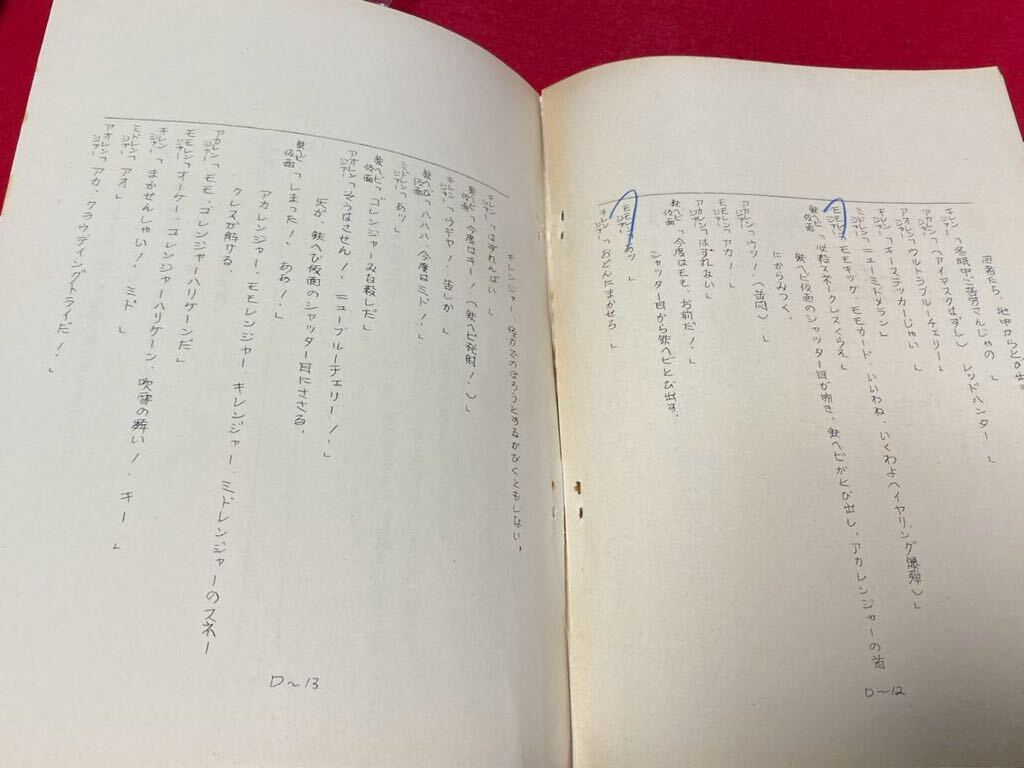 忍者たち、地中からとび出
キレンジャー「冬眠中ご苦労さんじゃの」
アカレンジャー「(アイマスクはずし) レッドハンター」
アオレンジャー「ウルトラブルーチェリー」
キレンジャー「キーステッカーじゃい」
ミドレンジャー「ニューミドメラン」
モモレンジャー「モモキック、モモカード、いいわね、いくわよ(イヤリング爆弾)」
鉄ヘビ仮面「必殺スネークレスくらえ」
鉄ヘビ仮面のシャッター耳が開き、鉄ヘビがとび出し、アカレンジャーの首
にからみつく、
アカレンジャー「ウッ!(苦悶)」
モモレンジャー「アカ!」
アカレンジャー「はずれない」
鉄ヘビ仮面「今度はモモ、お前だ!」
シャッター耳から鉄ヘビとび出す。
モモレンジャー「あッ」
キレンジャー「おどんにまかせろ」
D〜12
キレンジャー、怪力でのばろうとするがびくともしない、
キレンジャー「はずれんばい」
鉄ヘビ仮面「今度はキー!(鉄ヘビ発射!)」
キレンジャー「ウギャ!苦しか」
鉄ヘビ仮面「ハハハ、今度はミド!」
ミドレンジャー「あッ」
鉄ヘビ仮面「ゴレンジャーみな殺しだ」
アオレンジャー「そうはさせん!ニューブルーチェリー!」
矢が、鉄ヘび仮面のシャッター耳にささる。
鉄ヘビ仮面「しまった!ああ!」
アカレンジャー、モモレンジャー、キレンジャー、ミドレンジャーのスネー
クレスが解ける。
アカレンジャー「モモ、ゴレンジャーハリケーンだ」
モモレンジャー「オーケー、ゴレンジャーハリケーン、吹雪の舞い!キー」
キレンジャー「まかせんしゃい!ミド」
ミドレンジャー「アオ」
アオレンジャー「アカ、クラウディングトライだ!」
D〜13